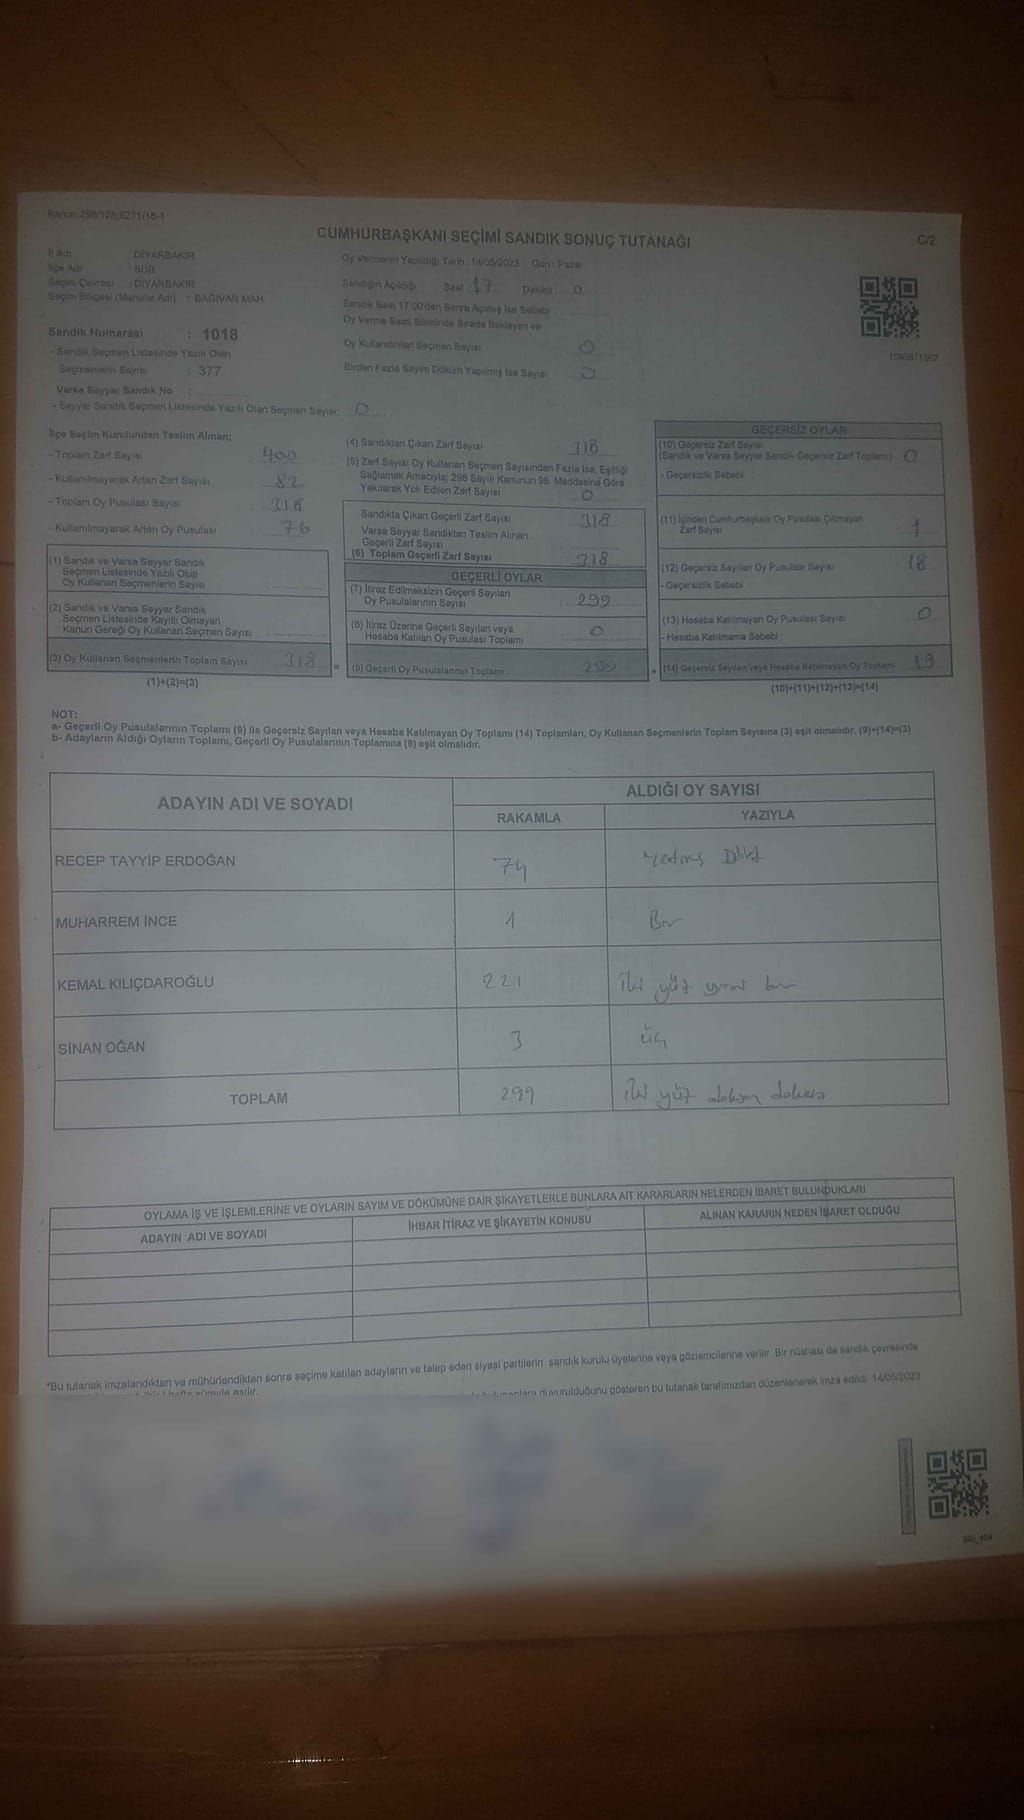 Kanun 298/105,6271/18-1
CUMHURBAŞKANI SEÇİMİ SANDIK SONUÇ TUTANAĞI
C/2
İl Adı : DİYARBAKIR
İlçe Adı : SUR
Seçim Çevresi : DİYARBAKIR
Seçim Bölgesi (Mahalle Adı) : BAĞIVAR MAH.
Sandık Numarası : 1018
- Sandık Seçmen Listesinde Yazılı Olan
Seçmenlerin Sayısı : 377
Varsa Seyyar Sandık No :
- Seyyar Sandık Seçmen Listesinde Yazılı Olan Seçmen Sayısı: 0
Oy Vermenin Yapıldığı Tarih : 14/05/2023 Gün : Pazar
Sandığın Açıldığı Saat 17 Dakika : 0
Sandık Saat 17:00'den Sonra Açılmış İse Sebebi :
Oy Verme Saati Bitiminde Sırada Bekleyen ve
Oy Kullandırılan Seçmen Sayısı 0
Birden Fazla Sayım Döküm Yapılmış İse Sayısı 0
1093871502
İlçe Seçim Kurulundan Teslim Alınan;
- Toplam Zarf Sayısı : 400
- Kullanılmayarak Artan Zarf Sayısı : 82
- Toplam Oy Pusulası Sayısı : 318
- Kullanılmayarak Artan Oy Pusulası : 76
(1) Sandık ve Varsa Seyyar Sandık
Seçmen Listesinde Yazılı Olup
Oy Kullanan Seçmenlerin Sayısı :
(2) Sandık ve Varsa Seyyar Sandık
Seçmen Listesinde Kayıtlı Olmayan
Kanun Gereği Oy Kullanan Seçmen Sayısı :
(3) Oy Kullanan Seçmenlerin Toplam Sayısı 318 =
(1)+(2)=(3)
(4) Sandıktan Çıkan Zarf Sayısı 318
(5) Zarf Sayısı Oy Kullanan Seçmen Sayısından Fazla İse, Eşitliği
Sağlamak Amacıyla; 298 Sayılı Kanunun 98. Maddesine Göre
Yakılarak Yok Edilen Zarf Sayısı 0
Sandıkta Çıkan Geçerli Zarf Sayısı : 318
Varsa Seyyar Sandıktan Teslim Alınan
Geçerli Zarf Sayısı
(6) Toplam Geçerli Zarf Sayısı 318
GEÇERLİ OYLAR
(7) İtiraz Edilmeksizin Geçerli Sayılan
Oy Pusulalarının Sayısı : 299
(8) İtiraz Üzerine Geçerli Sayılan veya
Hesaba Katılan Oy Pusulası Toplamı : 0
(9) Geçerli Oy Pusulalarının Toplamı 299 +
GEÇERSİZ OYLAR
(10) Geçersiz Zarf Sayısı
(Sandık ve Varsa Seyyar Sandık Geçersiz Zarf Toplamı) : 0
- Geçersizlik Sebebi :
(11) İçinden Cumhurbaşkanı Oy Pusulası Çıkmayan
Zarf Sayısı 1
(12) Geçersiz Sayılan Oy Pusulası Sayısı 18
- Geçersizlik Sebebi :
(13) Hesaba Katılmayan Oy Pusulası Sayısı 0
- Hesaba Katılmama Sebebi :
(14) Geçersiz Sayılan veya Hesaba Katılmayan Oy Toplamı 19
(10)+(11)+(12)+(13)=(14)
NOT:
a- Geçerli Oy Pusulalarının Toplamı (9) ile Geçersiz Sayılan veya Hesaba Katılmayan Oy Toplamı (14) Toplamları, Oy Kullanan Seçmenlerin Toplam Sayısına (3) eşit olmalıdır. (9)+(14)=(3)
b- Adayların Aldığı Oyların Toplamı, Geçerli Oy Pusulalarının Toplamına (9) eşit olmalıdır.
ADAYIN ADI VE SOYADI
ALDIĞI OY SAYISI
RAKAMLA YAZIYLA
RECEP TAYYİP ERDOĞAN 74 Yetmiş Dört
MUHARREM İNCE 1 Bir
KEMAL KILIÇDAROĞLU 221 iki yüz yirmi bir
SİNAN OĞAN 3 üç
TOPLAM 299 iki yüz doksan dokuz
OYLAMA İŞ VE İŞLEMLERİNE VE OYLARIN SAYIM VE DÖKÜMÜNE DAİR ŞİKAYETLERLE BUNLARA AİT KARARLARIN NELERDEN İBARET BULUNDUKLARI
ADAYIN ADI VE SOYADI İHBAR İTİRAZ VE ŞİKAYETİN KONUSU ALINAN KARARIN NEDEN İBARET OLDUĞU
*Bu tutanak imzalandıktan ve mühürlendikten sonra seçime katılan adayların ve talep eden siyasi partilerin sandık kurulu üyelerine veya gözlemcilerine verilir. Bir nüshası da sandık çevresinde
hafta süreyle asılır.
duyurulduğunu gösteren bu tutanak tarafımızdan düzenlenerek imza edildi. 14/05/2023